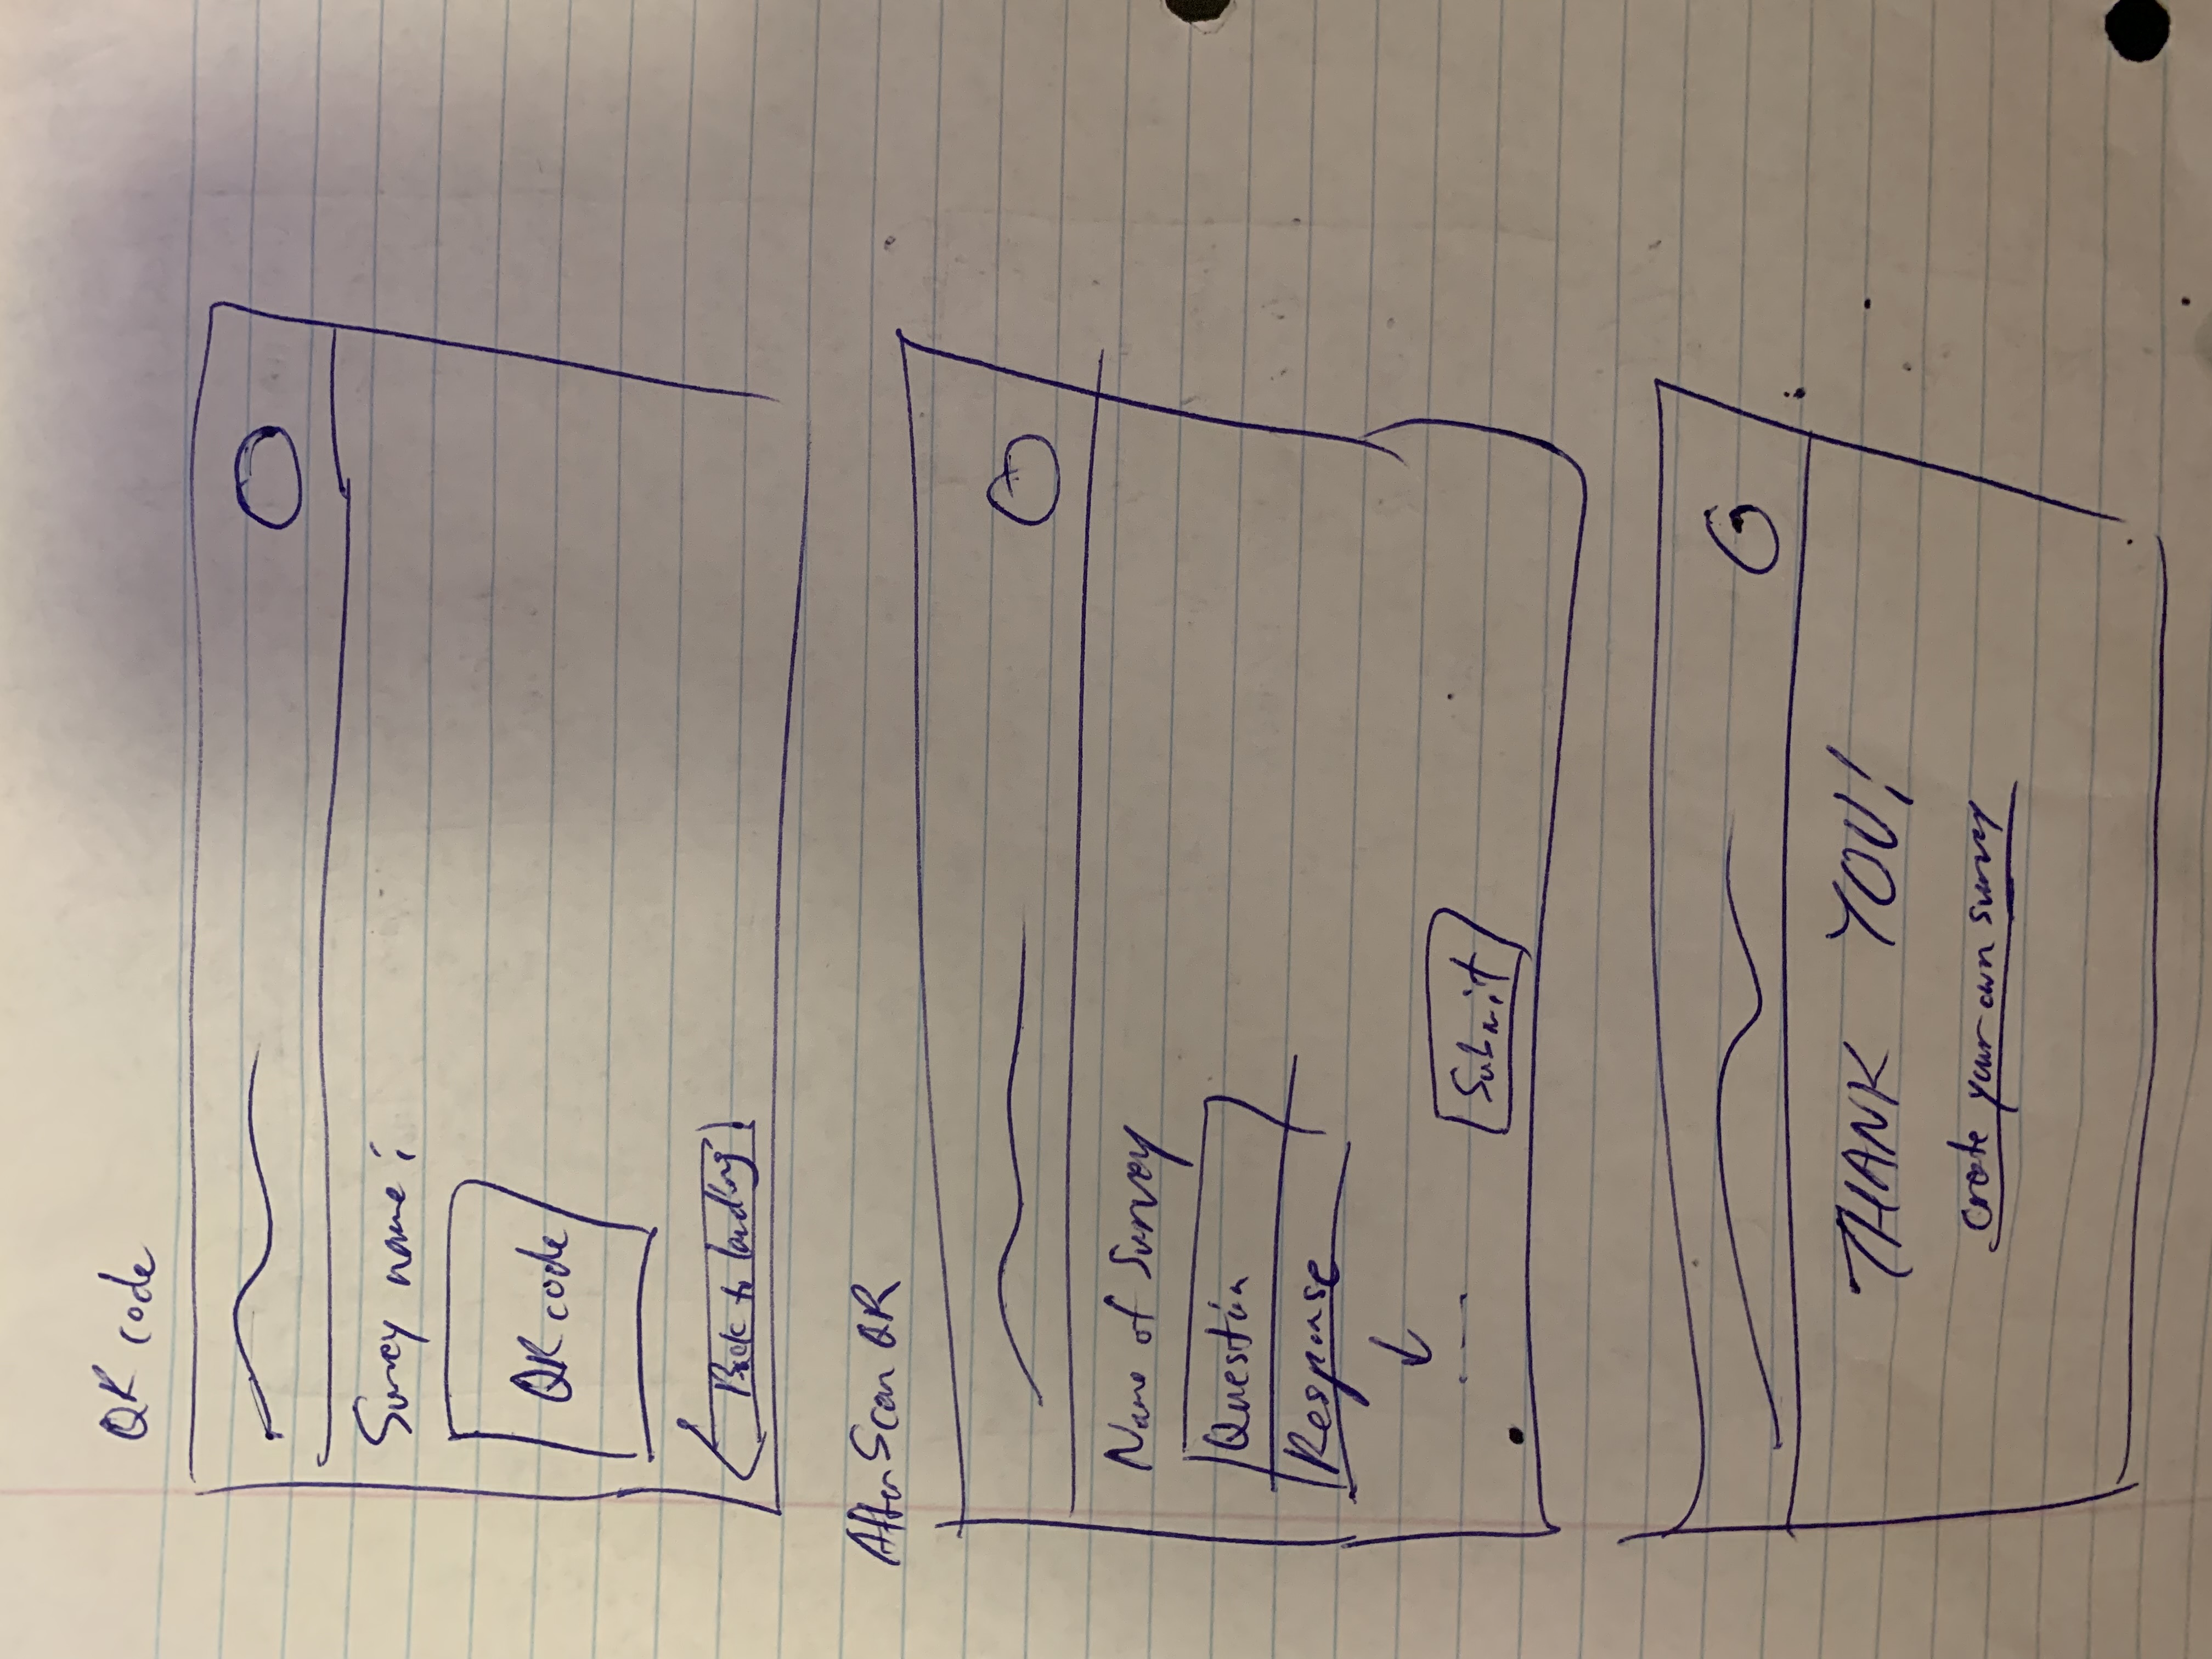 QR code
Survey name:
QR code
Back to landing
After Scan QR
Name of Survey
Question
Response
Submit
THANK YOU!
create your own survey